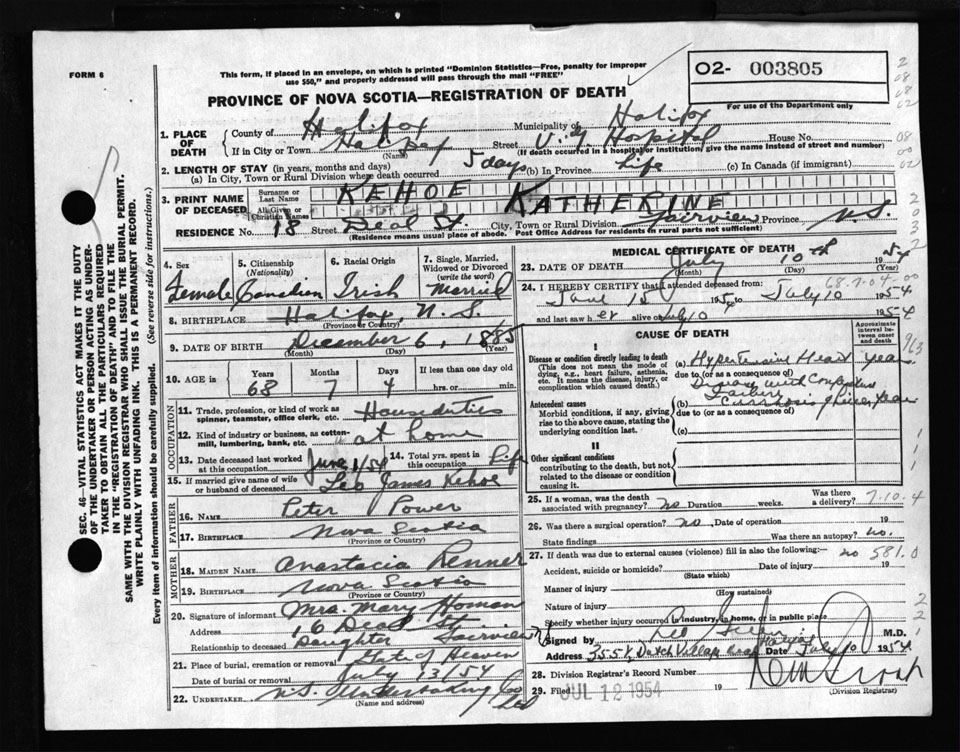 FORM 6
This form, if placed in an envelope, on which is printed "Dominion Statistics—Free, penalty for improper
use $50," and properly addressed will pass through the mail "FREE"
02- 003805
For use of the Department only
PROVINCE OF NOVA SCOTIA—REGISTRATION OF DEATH
1. PLACE OF DEATH
County of Halifax Municipality of Halifax
If in City or Town Halifax Street V.G. Hospital House No.
(Name) (If death occurred in a hospital or institution, give the name instead of street and number)
2. LENGTH OF STAY (in years, months and days)
(a) In City, Town or Rural Division where death occurred 5 days (b) In Province Life (c) In Canada (if immigrant)
3. PRINT NAME OF DECEASED
Surname or Last Name KEHOE
All Given or Christian Names KATHERINE
RESIDENCE No. 18 Street Deal St. City, Town or Rural Division Fairview Province N.S.
(Residence means usual place of abode. Post Office Address for residents in rural parts not sufficient)
4. Sex Female
5. Citizenship (Nationality) Canadian
6. Racial Origin Irish
7. Single, Married, Widowed or Divorced (write the word) Married
8. BIRTHPLACE Halifax, N.S.
(Province or Country)
9. DATE OF BIRTH December 6, 1885
(Month) (Day) (Year)
10. AGE in Years Months Days If less than one day old
68 7 4 hrs. or min.
OCCUPATION
11. Trade, profession, or kind of work as spinner, teamster, office clerk, etc. Houseduties
12. Kind of industry or business, as cotton-mill, lumbering, bank, etc. at home
13. Date deceased last worked at this occupation June 1/54
14. Total yrs. spent in this occupation Life
15. If married give name of wife or husband of deceased Leo James Kehoe
FATHER
16. NAME Peter Power
17. BIRTHPLACE Nova Scotia
(Province or Country)
MOTHER
18. MAIDEN NAME Anastacia Renner
19. BIRTHPLACE Nova Scotia
(Province or Country)
20. Signature of informant Mrs. Mary Homan
Address 16 Deal St. Fairview
Relationship to deceased Daughter
21. Place of burial, cremation or removal Gate of Heaven
Date of burial or removal July 13/54
22. UNDERTAKER N.S. Undertaking Co Ltd
(Name and address)
MEDICAL CERTIFICATE OF DEATH
23. DATE OF DEATH July 10th 1954
(Month) (Day) (Year)
24. I HEREBY CERTIFY that I attended deceased from
June 15 1954 to July 10 1954
and last saw her alive on July 10 1954
68.7.04
CAUSE OF DEATH
Approximate interval between onset and death
I
Disease or condition directly leading to death
(This does not mean the mode of dying, e.g., heart failure, asthenia, etc. It means the disease, injury, or complication which caused death.)
(a) Hypertensive Heart year
due to (or as a consequence of)
Disease with Congestive Failure
Antecedent causes
Morbid conditions, if any, giving rise to the above cause, stating the underlying condition last.
(b) Cirrhosis of Liver year
due to (or as a consequence of)
(c)
II
Other significant conditions
contributing to the death, but not related to the disease or condition causing it.
25. If a woman, was the death associated with pregnancy? no Duration weeks. Was there a delivery?
7.10.4
26. Was there a surgical operation? no. Date of operation 19
State findings Was there an autopsy? no.
27. If death was due to external causes (violence) fill in also the following:— no 581.0
Accident, suicide or homicide? Date of injury 19
(State which)
Manner of injury
(How sustained)
Nature of injury
Specify whether injury occurred in industry, in home, or in public place
Signed by Leo M.D.
Address 3558 Dutch Village Road Halifax Date July 10 1954
28. Division Registrar's Record Number
29. Filed JUL 12 1954 19
(Division Registrar)
SEC. 46- VITAL STATISTICS ACT MAKES IT THE DUTY
OF THE UNDERTAKER OR PERSON ACTING AS UNDER-
TAKER TO OBTAIN ALL THE PARTICULARS REQUIRED
IN THE "REGISTRATION OF DEATH" AND TO FILE THE
SAME WITH THE DIVISION REGISTRAR WHO SHALL ISSUE THE BURIAL PERMIT.
WRITE PLAINLY WITH UNFADING INK. THIS IS A PERMANENT RECORD.
Every item of information should be carefully supplied. (See reverse side for instructions.)